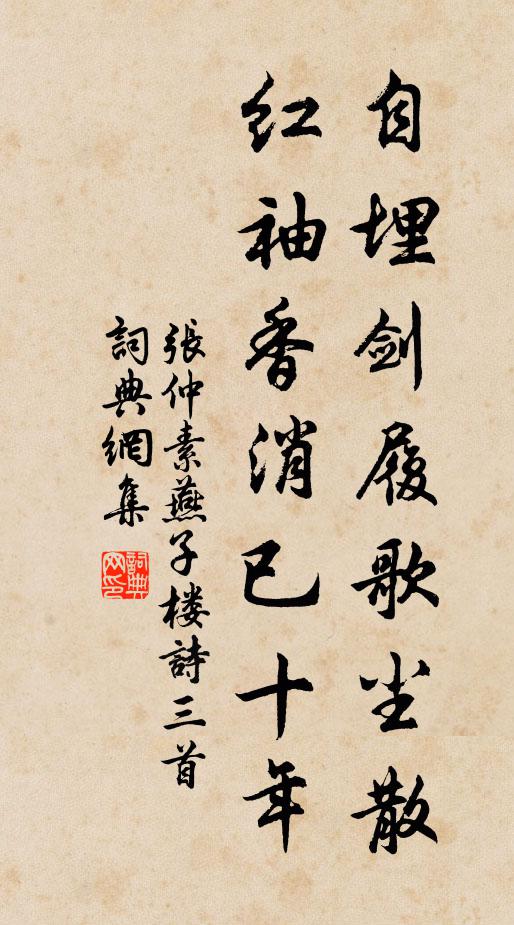 自埋剑履歌尘散
红袖香消已十年
張仲素燕子楼詩三首
詞典網集
詞典網印